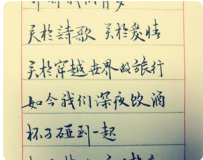 关於詩歌 关於爱情
关於穿越世界的旅行
如今我们深夜饮酒
杯子碰到一起